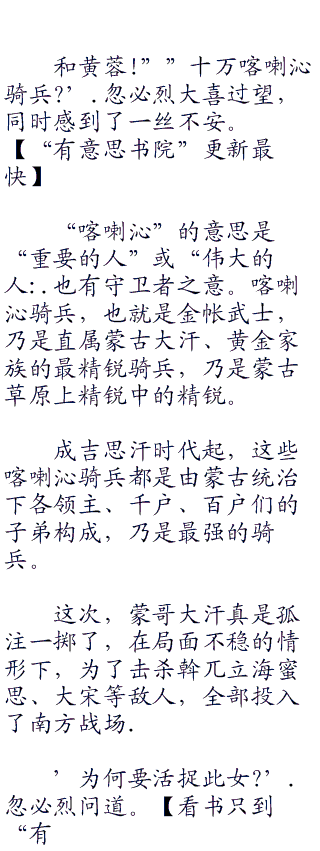 和黄蓉!””十万喀喇沁
骑兵?’.忽必烈大喜过望,
同时感到了一丝不安。
【“有意思书院”更新最
快】
“喀喇沁”的意思是
“重要的人”或“伟大的
人:.也有守卫者之意。喀喇
沁骑兵,也就是金帐武士,
乃是直属蒙古大汗、黄金家
族的最精锐骑兵,乃是蒙古
草原上精锐中的精锐。
成吉思汗时代起,这些
喀喇沁骑兵都是由蒙古统治
下各领主、千户、百户们的
子弟构成,乃是最强的骑
兵。
这次,蒙哥大汗真是孤
注一掷了,在局面不稳的情
形下,为了击杀斡兀立海蜜
思、大宋等敌人,全部投入
了南方战场.
’为何要活捉此女?’.
忽必烈问道。【看书只到
“有